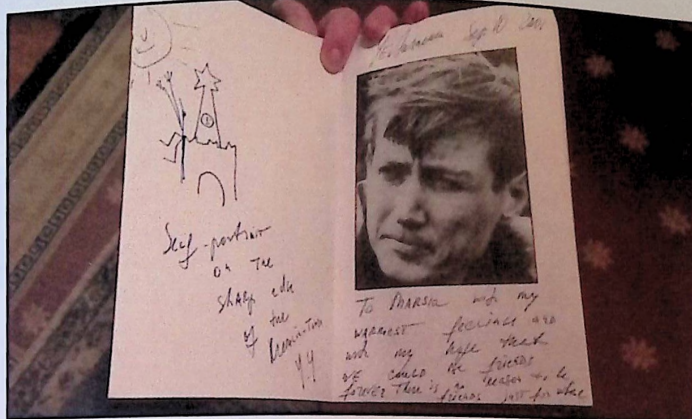 Self-portrait
on the
sharp edge
of the
YY
Sep 10
To MARSIA with my
warmest feelings and
with my hope that
WE could be friends
forever There is no reason to be
friends just for